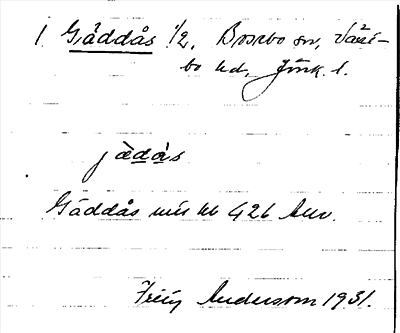 1 Gäddås 1/2, Bosebo sn, Väst-
bo hd, Jönk. l.
jädås
Gäddås mtr nr 426
Anderson 1931.